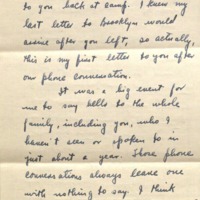 to you back at camp. I knew my
last letter to Brooklyn would
arrive after you left, so actually,
this is my first letter to you after
our phone conversation.
It was a big event for
me to say hello to the whole
family, including you, who I
haven't seen or spoken to in
just about a year. Those phone
conversations always leave one
with nothing to say. I think